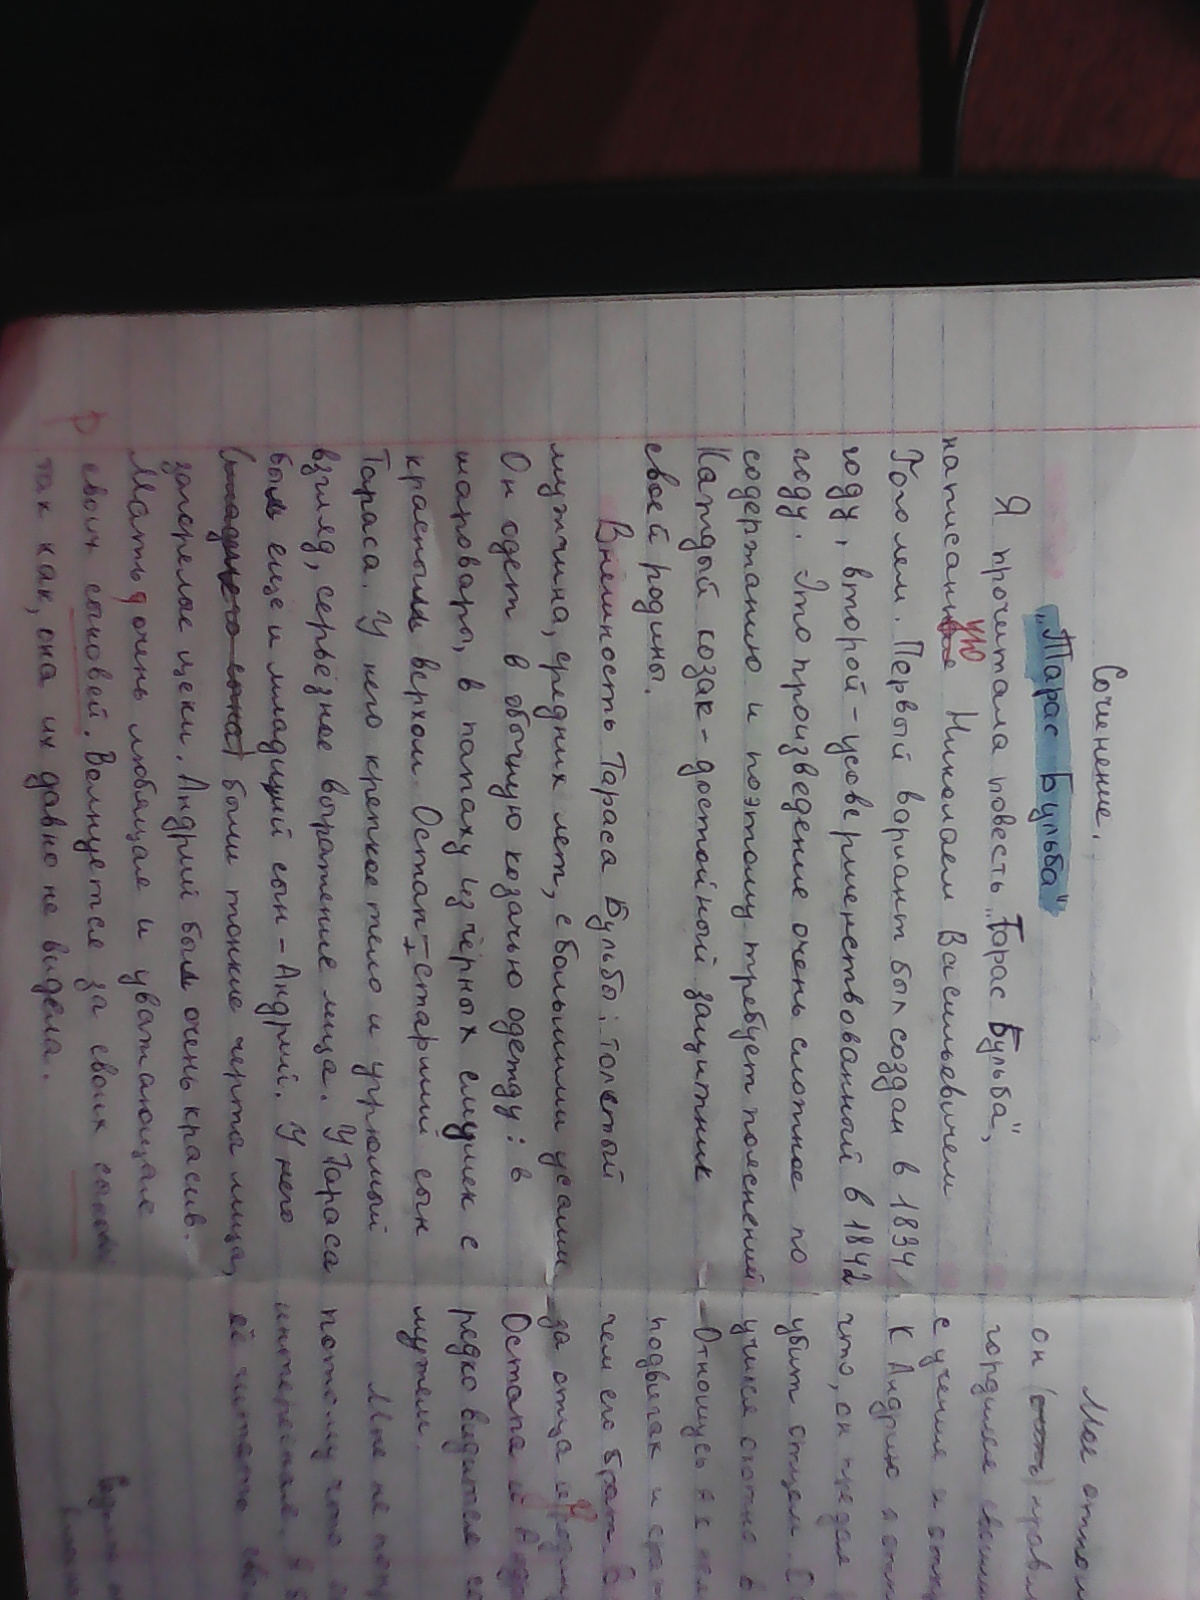 Сочинение.
"Тарас Бульба"
Я прочитала повесть "Тарас Бульба",
ую
написанное Николаем Васильевичем
Гоголем. Первый вариант был создан в 1834
году, второй - усовершенствованный в 1842
году. Это произведение очень сложное по
содержанию и поэтому требует пояснений
Каждый козак - достойный защитник
своей родины.
Внешность Тараса Бульбы: толстый
мужчина, средних лет, с большими усами
Он одет в обычную козачью одежду: в
шаровары, в папаху из чёрных смушек с
красным верхом. Остап - старший сын
Тараса. У него крепкое тело и угрюмый
взгляд, серьёзное выражение лица. У Тараса
был еще и младший сын - Андрий. У него
были тонкие черта лица,
загорелые щеки. Андрий был очень красив.
Мать очень любящая и уважающая
своих сыновей. Волнуется за своих сынов
так как, она их давно не видела.
Р
Мое
он
гордился
с учения и
к Андрию
что, он предал
убит отцем.
учился охотно
Отношусь я к
подвигах и
чем его брат
за отца и
Остапа и
редко видится
мужем.
Мне не
потому что
интересная. Я
её читать